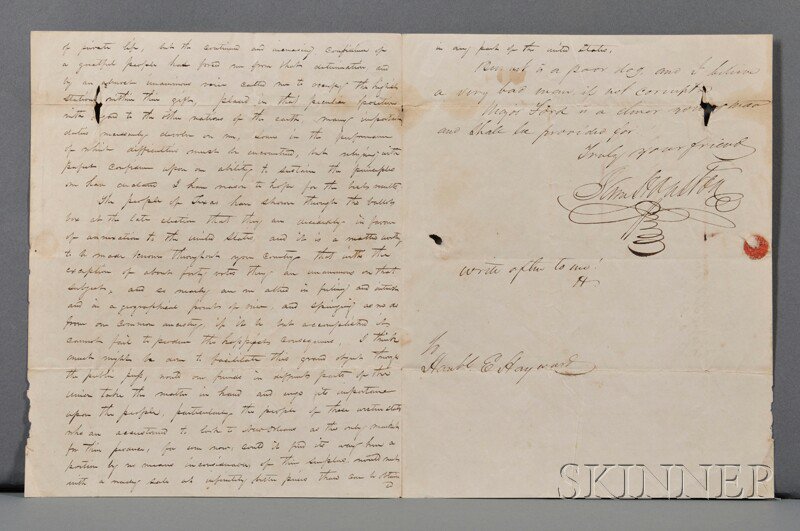 of private life, but the continued and increasing confidence of
a grateful people has forced me from that determination and
by an almost unanimous voice called me to occupy the highest
station within their gift, placed in this peculiar position
with regard to the other nations of the earth, many important
duties necessarily devolve on me, some in the performance
of which difficulties must be encountered, but relying with
perfect confidence upon our ability to sustain the principles
we have enacted I have reason to hope for the best results
The people of Texas have shown through the ballot
box at the late election that they are decidedly in favour
of annexation to the United States and it is a matter
to be made known throughout your Country that with the
exception of about forty votes they are unanimous on that
subject, and as nearly as we are allied in feeling and interest
and in a geographical point of view, and springing as we do
from one common ancestry, if it be but accomplished it
cannot fail to produce the happiest consequences. I think
much might be done to facilitate this grand object through
the public press, would our friends in different parts of the
Union take the matter in hand and urge its importance
upon the people, particularly the people of these western states
who are accustomed to look to New Orleans as the only market
for their produce, for even now, could it find its way here a
portion by no means inconsiderable of their surplus would meet
with a ready sale at infinitely better prices than can be obtained
in any part of the united States.
is a poor dog, and I believe
a very bad man if not corrupt
Major Ford is a clever man
and shall be provided for.
Truly your friend
Sam Houston
write often to me!
H
To
Honbl E Hayward
SKINNER